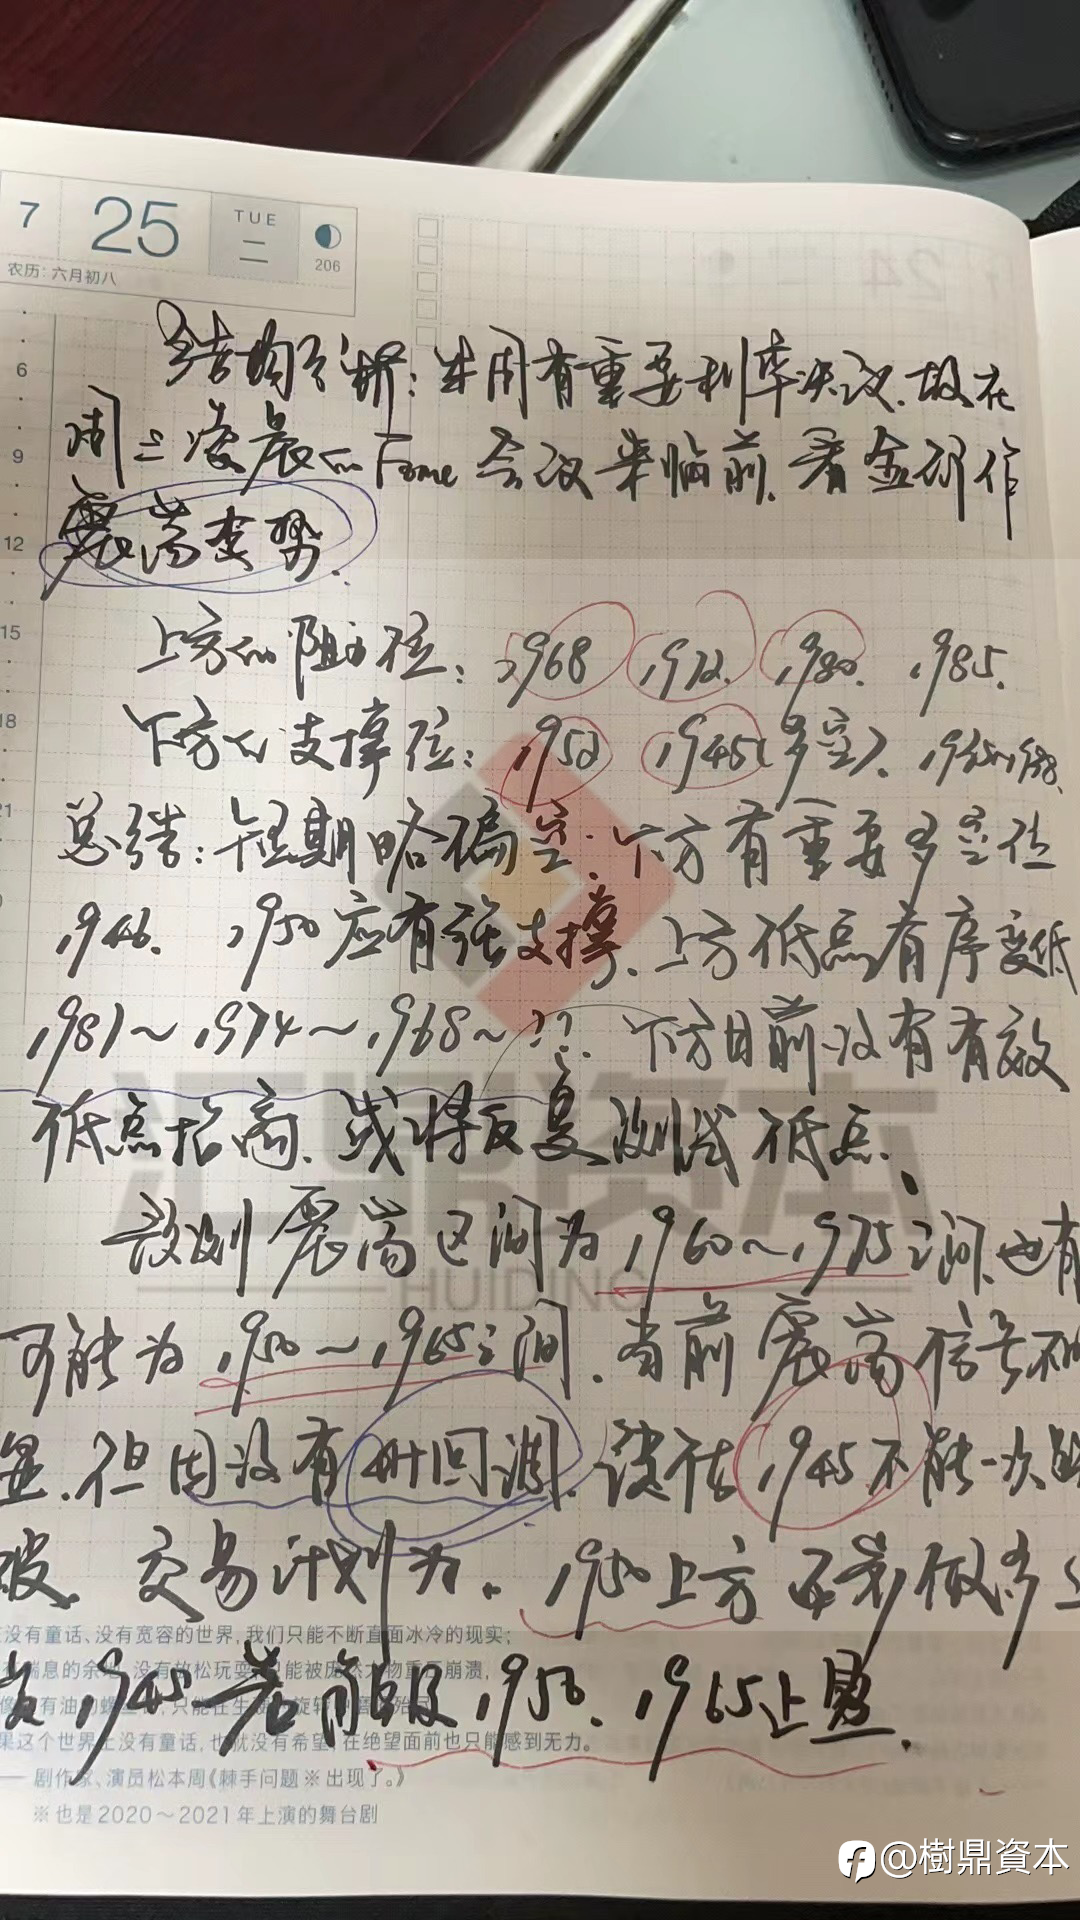 7 25 TUE 二
206
农历:六月初八
6
9
12
15
18
21
结构分析:本周有重要利率决议.故在
周三凌晨的Fomc会议来临前.看金价作
震荡走势.
上方的阻力位:1968 1972. 1980. 1985.
下方的支撑位:1952 1945(多空).
总结:短期略偏空.下方有重要多空位
1946. 1950应有强支撑.上方低点有序变低
1981~1974~1968~??. 下方目前没有有效
低点抬高.或将反复测试低点.
故则震荡区间为1960~1975之间.也有
可能为1950~1965之间.当前震荡信号不明
显.但因没有回调.误估1945不能一次
破. 交易计划为. 1950上方 做多
1945 1950. 1965止盈.
没有童话、没有宽容的世界,我们只能不断直面冰冷的现实;
喘息的余地,没有放松玩耍,只能被庞然大物重压崩溃,
像 有油的螺丝,只能在生
果这个世界上没有童话,也就没有希望,在绝望面前也只能感到无力。
—— 剧作家、演员松本周《棘手问题※出现了。》
※也是2020~2021年上演的舞台剧
汇鼎资本
HUIDING
@樹鼎資本